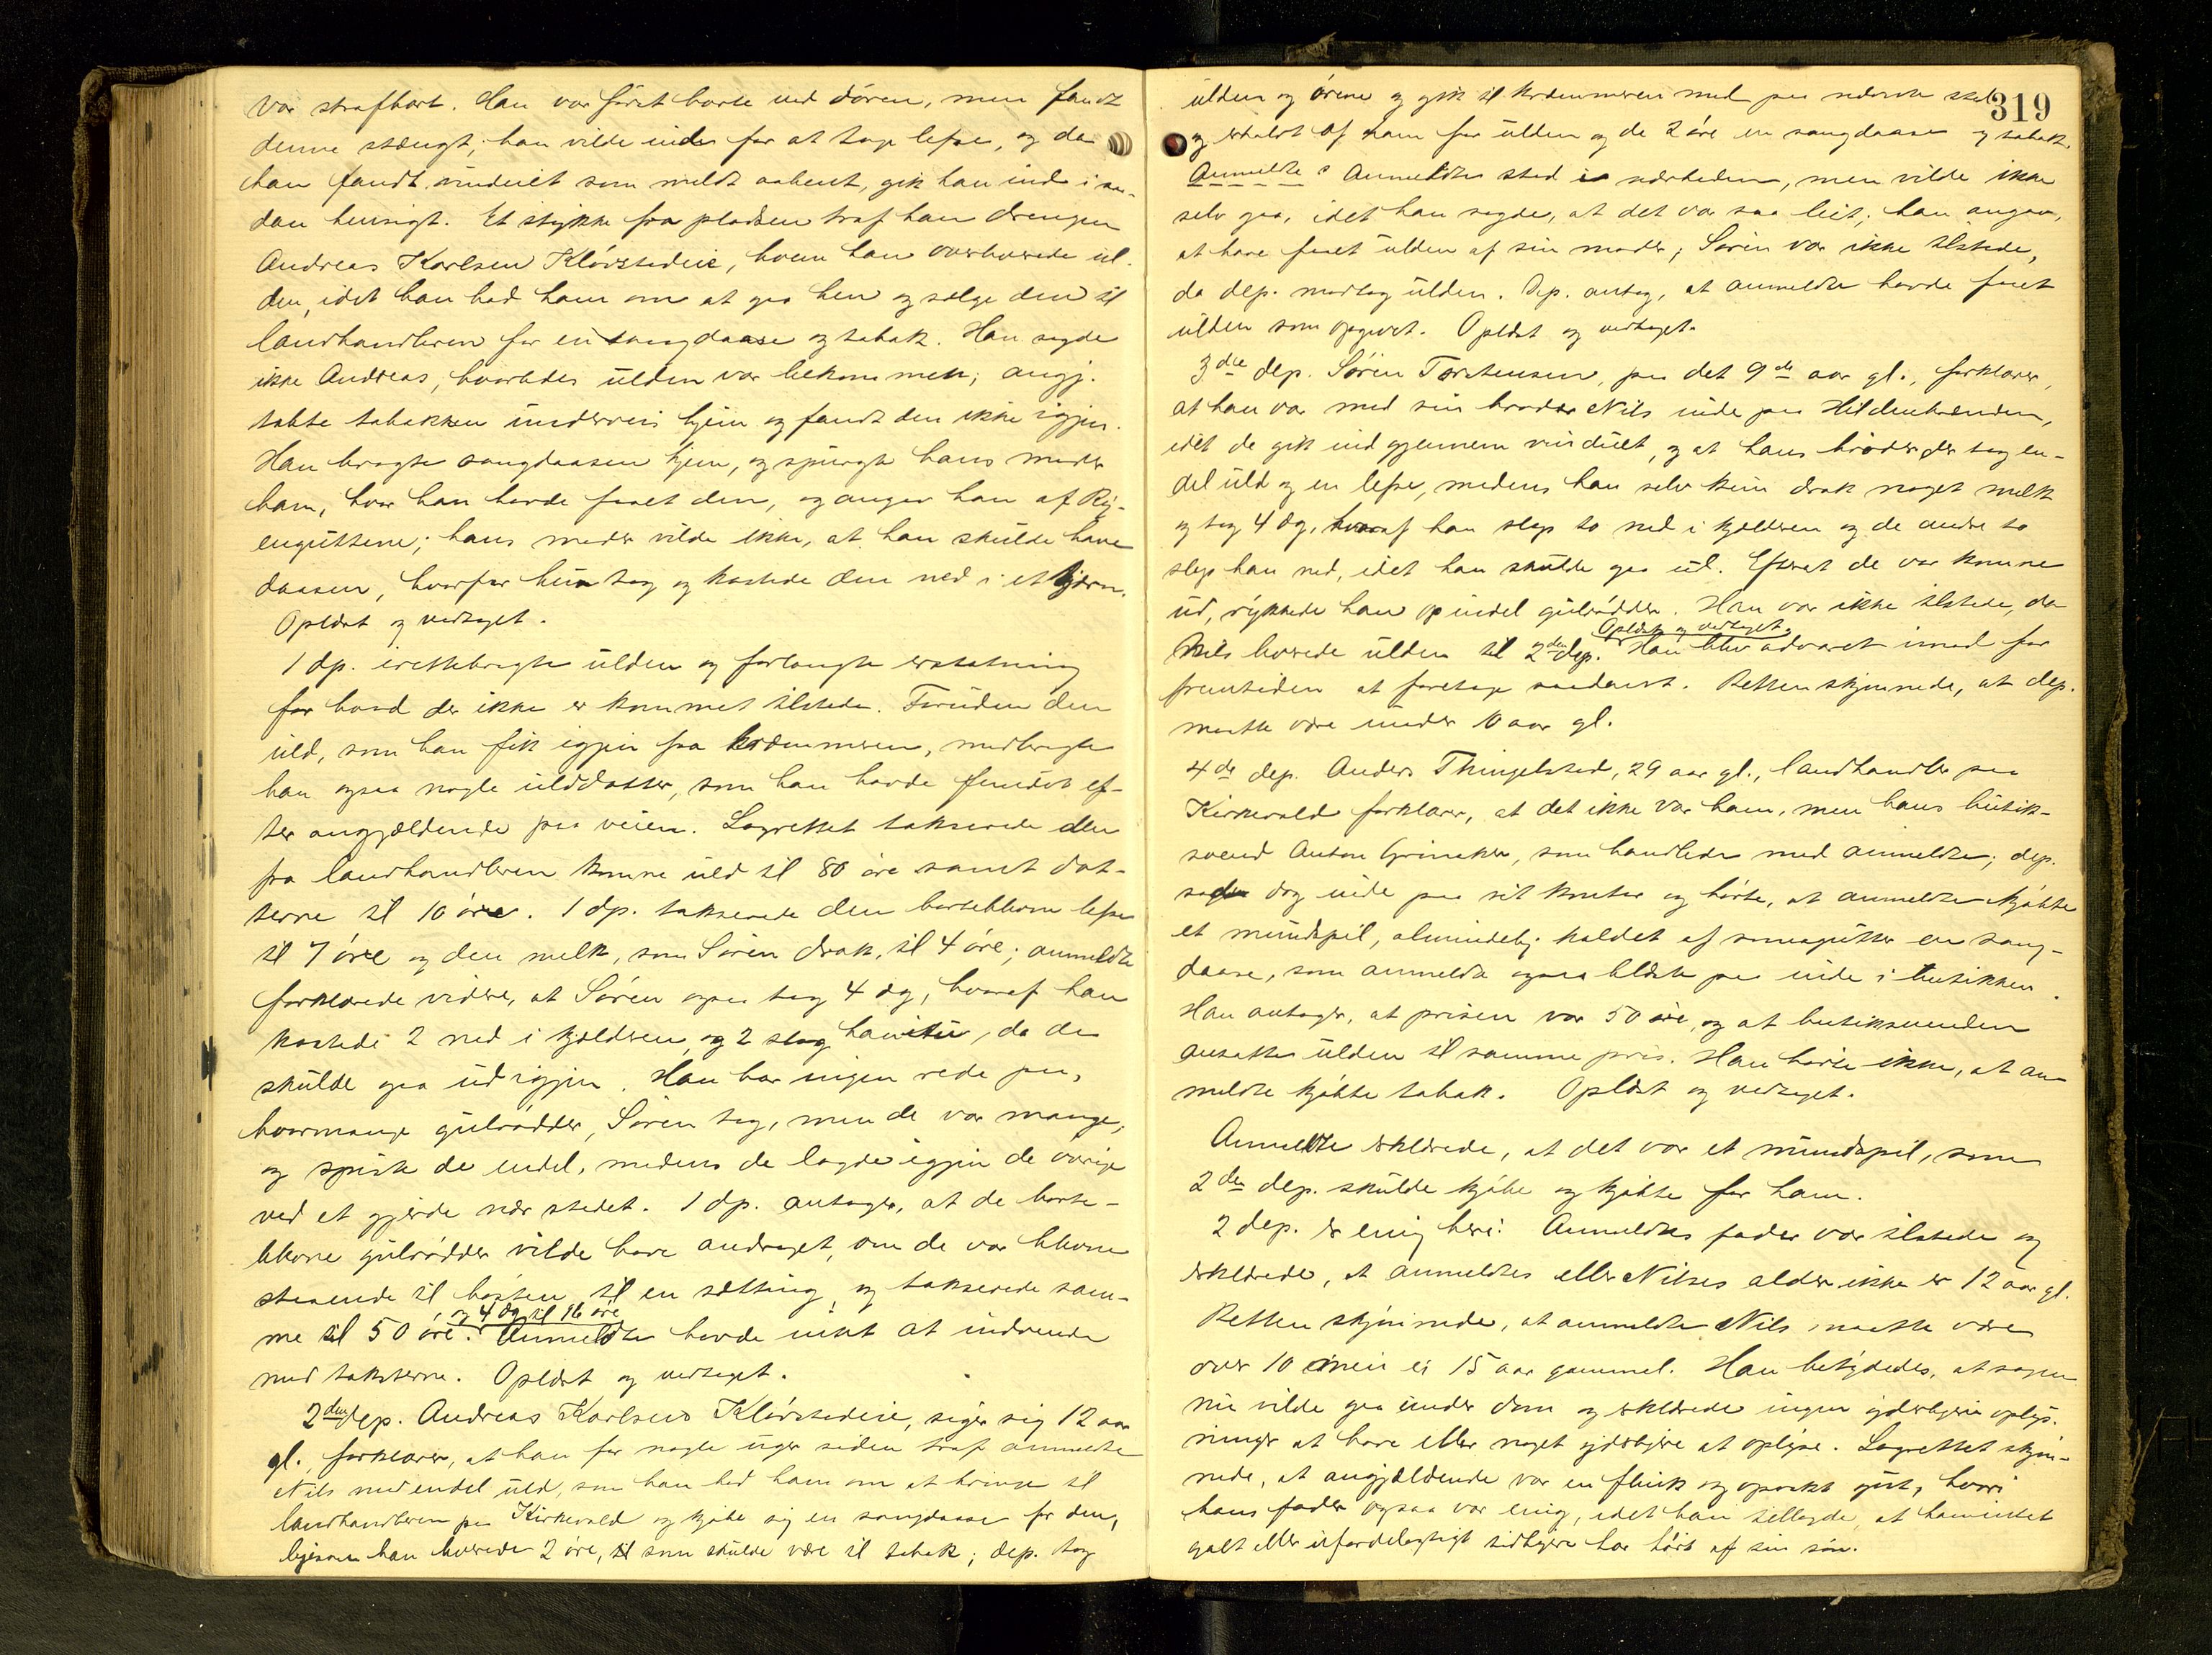 var strafbart. Han var först borte ved dören, men fandt
denne stængt; han vilde inde for at tage lefse, og da
han fandt vinduet som meldt aabent, gik han ind i saa-
dan hensigt. Et stykke fra pladsen traf han drengen
Andreas Karlsen Klövstadeie, hvem han overleverede ul-
den, idet han bad ham om at gaa hen og sælge den til
landhandleren for en sangdaase og tabak. Han sagde
ikke Andreas, hvorledes ulden var bekommen; angj.
tabte tabakken underveis hjem og fandt den ikke igjen.
Han bragte sangdaasen hjem, og spurgte hans moder
ham, hvor han havde faaet den, og angav han af Ry-
enguttene; hans moder vilde ikke, at han skulde have
daasen, hvorfor hun tog og kastede den ned i et tjern.
Oplæst og vedtaget.
1 dp. irettebragte ulden og forlangte erstatning
for hvad der ikke er kommet tilstede. Foruden den
uld, som han fik igjen fra kræmmeren, medbragte
han ogsaa nogle ulddotter, som han havde fundet ef-
ter angjældende paa veien. Lagrettet takserede den
fra landhandleren komne uld til 80 öre samt dot-
terne til 10 öre. 1 dp. takserede den bortekomne lefse
til 7 öre og den melk, som Sören drak, til 4 öre; anmeldte
forklarede videre, at Sören ogsaa tog 4 æg, hvoraf han
kastede 2 ned i kjælderen, og 2 slog han itu, da de
skulde gaa ud igjen. Han har ingen rede paa,
hvormange gulrödder, Sören tog, men de var mange,
og spiste de endel, medens de lagde igjen de övrige
ved et gjerde nær stedet. 1 dp. antager, at de borte-
blevne gulrödder vilde have andraget, om de var blevne
staaende til hösten, til en sætting, og takserede sam-
me til 50 öre, og 4 æg til 16 öre. Anmeldte havde intet at indvende
mod taksterne. Oplæst og vedtaget.
2den dep. Andreas Karlsen Klövstadeie, siger sig 12 aar
gl., forklarer, at han for nogle uger siden traf anmeldte
Nils med endel uld, som han bad ham om at bringe til
landhandleren paa Kirkevold og kjöbe sig en sangdaase for den,
ligesom han leverede 2 öre, til som skulde være til tabak; dep. tog
319
ulden og örene og gik til kræmmeren med paa nævnte sted
og erholdt af ham for ulden og de 2 öre en sangdaase og tabak.
Anmeldte: Anmeldte stod i nærheden, men vilde ikke
selv gaa, idet han sagde, at det var saa leit; han angav,
at have faaet ulden af sin moder; Sören var ikke tilstede,
da dep. modtog ulden. Dep. antog, at anmeldte havde faaet
ulden som opgivet. Oplæst og vedtaget.
3die dep. Sören Torstensen, paa det 9de aar gl., forklarer,
at han var med sin broder Nils inde paa Hildenbrænden,
idet de gik ind gjennem vinduet, og at hans broder der tog en-
del uld og en lefse, medens han selv kun drak noget melk
og tog 4 æg, hvoraf han slap to ned i kjælderen og de andre to
slap han ned, idet han skulde gaa ud. Efterat de var komne
ud, rykkede han op endel gulrödder. Han var ikke tilstede, da
Nils leverede ulden til 2den dep. Oplæst og vedtaget. Han blev advaret imod for
fremtiden at foretage saadant. Retten skjönnede, at dep.
maatte være under 10 aar gl.
4de dep. Anders Thingelstad, 29 aar gl., landhandler paa
Kirkevold forklarer, at det ikke var ham, men hans butik-
svend Anton Grinaker, som handlede med anmeldte; dep.
sad dog inde paa sit kontor og hörte, at anmeldte kjöbte
et mundspil, almindelig kaldet af smaagutter en sang-
daase, som anmeldte ogsaa blæste paa inde i butikken.
Han antager, at prisen var 50 öre, og at butiksvenden
ansatte ulden til samme pris. Han hörte ikke, at an-
meldte kjöbte tabak. Oplæst og vedtaget.
Anmeldte erklærede, at det var et mundspil, som
2den dep. skulde kjöbe og kjöbte for ham.
2 dep. er enig heri. Anmeldtes fader var tilstede og
erklærede, at anmeldtes eller Nilses alder ikke er 12 aar gl.
Retten skjönnede, at anmeldte Nils maatte være
over 10 men ei 15 aar gammel. Han betydedes, at sagen
nu vilde gaa under dom og erklærede ingen yderligere oplys-
ninger at have eller noget yderligere at oplyse. Lagrettet skjön-
nede, at angjældende var en flink og opvakt gut, hvori
hans fader ogsaa var enig, idet han tillagde, at han intet
galt eller ufordelagtigt tidligere har hört af sin sön.